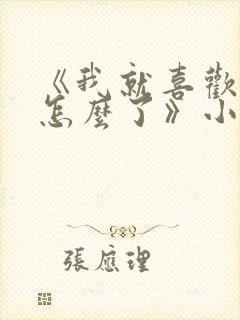 《我就喜歡
怎麼了》小
張應理